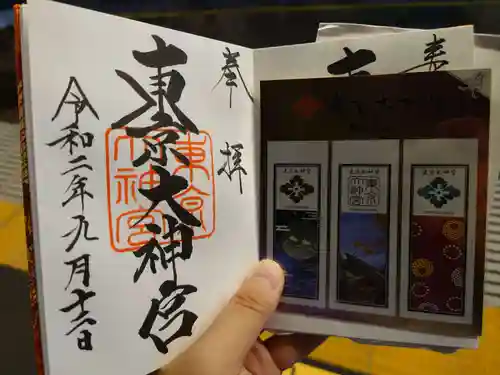 奉拝
東京大神宮
東京
大神宮
令和二年九月十二日
奉
東
東京大神宮
東京大神宮
東京大神宮